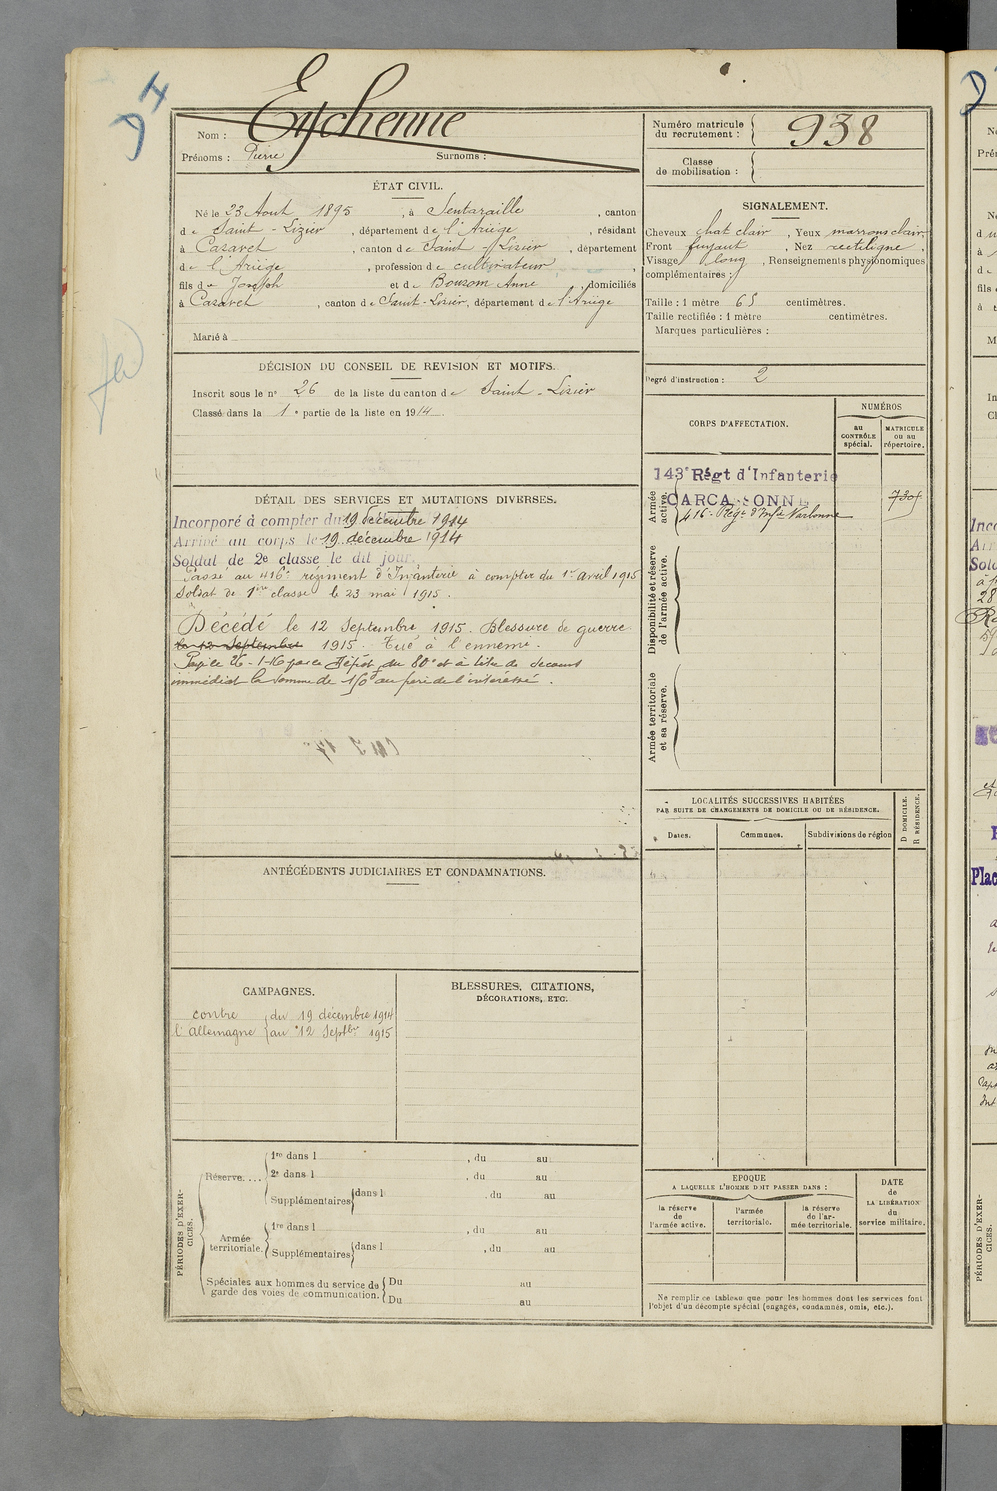 DI
Nom : Eychenne
Prénoms : Pierre Surnoms :
Numéro matricule du recrutement : 938
Classe de mobilisation :
ÉTAT CIVIL.
Né le 23 Aout 1895, à Sentaraille, canton
de Saint-Lizier, département de l'Ariège, résidant
à Cazavet, canton de Saint-Lizier, département
de l'Ariège, profession de cultivateur,
fils de Joseph et de Bousom Anne, domiciliés
à Cazavet, canton de Saint-Lizier, département de l'Ariège
Marié à
SIGNALEMENT.
Cheveux chat clair, Yeux marrons clair
Front fuyant, Nez rectiligne.
Visage long, Renseignements physionomiques
complémentaires :
Taille : 1 mètre 65 centimètres.
Taille rectifiée : 1 mètre centimètres.
Marques particulières :
Degré d'instruction : 2
DÉCISION DU CONSEIL DE REVISION ET MOTIFS.
Inscrit sous le n° 26 de la liste du canton de Saint-Lizier
Classé dans la 1e partie de la liste en 1914.
CORPS D'AFFECTATION.
NUMÉROS
au CONTRÔLE spécial.
MATRICULE ou au répertoire.
Armée active.
143e Régt d'Infanterie
CARCASSONNE
416e Régt d'Inf ie Narbonne
7305
Disponibilité et réserve de l'armée active.
Armée territoriale et sa réserve.
DÉTAIL DES SERVICES ET MUTATIONS DIVERSES.
Incorporé à compter du 19 décembre 1914
Arrivé au corps le 19 décembre 1914
Soldat de 2e classe le dit jour.
Passé au 416e régiment d'Infanterie à compter du 1er avril 1915
Soldat de 1ère classe le 23 mai 1915.
Décédé le 12 Septembre 1915. Blessure de guerre
le 12 Septembre 1915. Tué à l'ennemi.
Payé le 26-1-16 par le Dépôt du 80e et à titre de secours
immédiat la somme de 150 au père de l'intéressé.
LOCALITÉS SUCCESSIVES HABITÉES
PAR SUITE DE CHANGEMENTS DE DOMICILE OU DE RÉSIDENCE.
Dates.
Communes.
Subdivisions de région
D DOMICILE.
R RÉSIDENCE.
ANTÉCÉDENTS JUDICIAIRES ET CONDAMNATIONS.
CAMPAGNES.
contre du 19 décembre 1914
l'Allemagne au 12 Septbre 1915
BLESSURES, CITATIONS,
DÉCORATIONS, ETC.
PÉRIODES D'EXERCICES.
Réserve....
1re dans l , du au
2e dans l , du au
Supplémentaires dans l , du au
Armée territoriale.
1re dans l , du au
Supplémentaires dans l , du au
Spéciales aux hommes du service de
garde des voies de communication.
Du au
Du au
EPOQUE
A LAQUELLE L'HOMME DOIT PASSER DANS :
la réserve de l'armée active.
l'armée territoriale.
la réserve de l'armée territoriale.
DATE de LA LIBÉRATION du service militaire.
Ne remplir ce tableau que pour les hommes dont les services font
l'objet d'un décompte spécial (engagés, condamnés, omis, etc.).